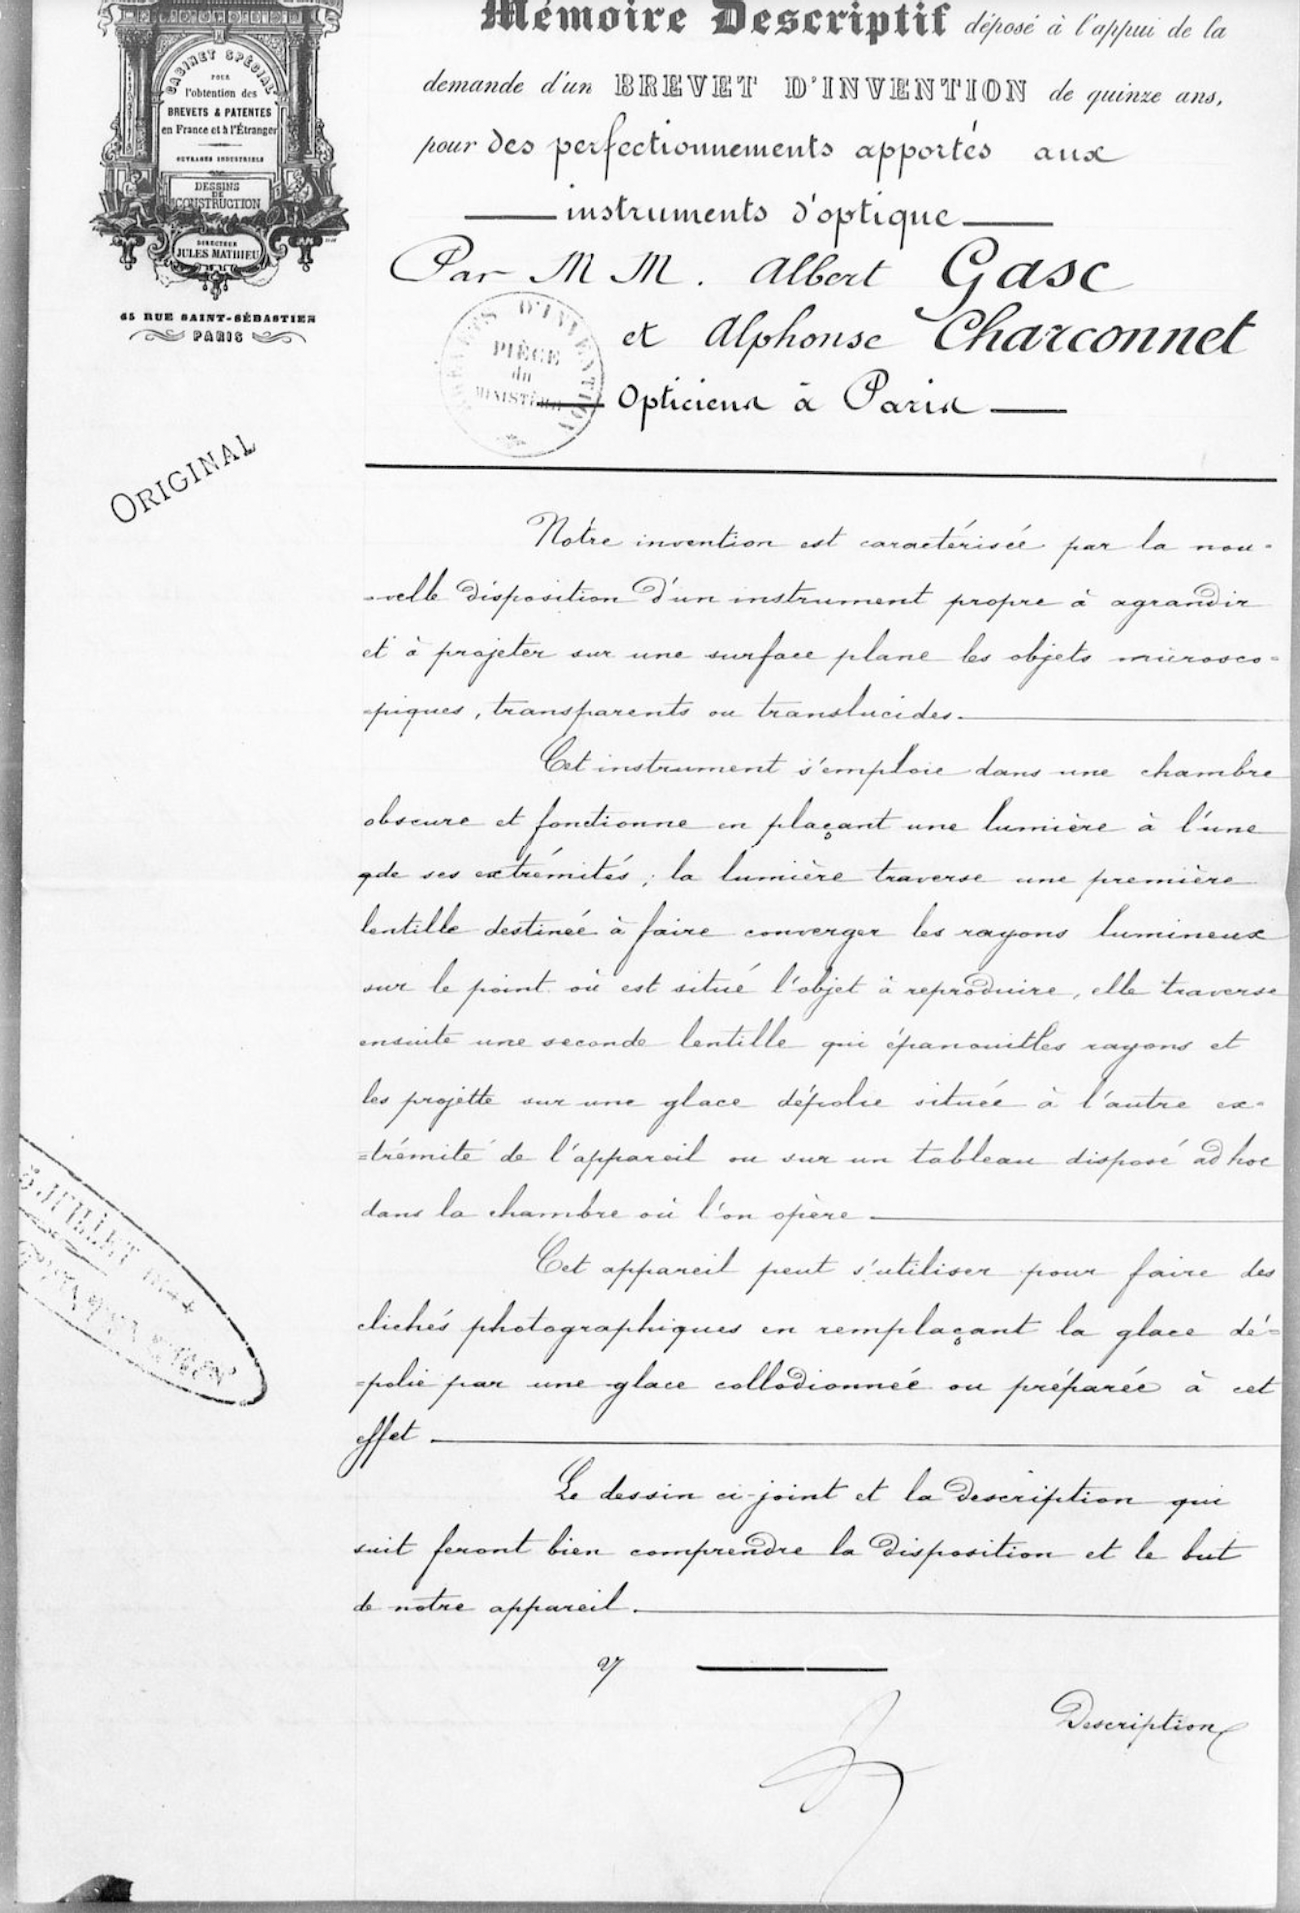 CABINET SPÉCIAL
POUR
l'obtention des
BREVETS & PATENTES
en France et à l'Étranger
OUVRAGES INDUSTRIELS
DESSINS
DE
CONSTRUCTION
DIRECTEUR
JULES MATHIEU
65 RUE SAINT-SÉBASTIEN
PARIS
ORIGINAL
Mémoire Descriptif déposé à l'appui de la
demande d'un BREVET D'INVENTION de quinze ans,
pour des perfectionnements apportés aux
instruments d'optique
Par MM. Albert Gasc
et Alphonse Charconnet
Opticiens à Paris
BREVETS D'INVENTION
PIÈCE
du
MINISTÈRE
Notre invention est caractérisée par la nou-
-velle disposition d'un instrument propre à agrandir
et à projeter sur une surface plane les objets microsco-
-piques, transparents ou translucides.
Cet instrument s'emploie dans une chambre
obscure et fonctionne en plaçant une lumière à l'une
de ses extrémités ; la lumière traverse une première
lentille destinée à faire converger les rayons lumineux
sur le point où est situé l'objet à reproduire, elle traverse
ensuite une seconde lentille qui épanouit les rayons et
les projette sur une glace dépolie située à l'autre ex-
=trémité de l'appareil ou sur un tableau disposé ad hoc
dans la chambre où l'on opère
Cet appareil peut s'utiliser pour faire des
clichés photographiques en remplaçant la glace dé-
=polie par une glace collodionnée ou préparée à cet
effet
Le dessin ci-joint et la description qui
suit feront bien comprendre la disposition et le but
de notre appareil.
Description
JUILLET